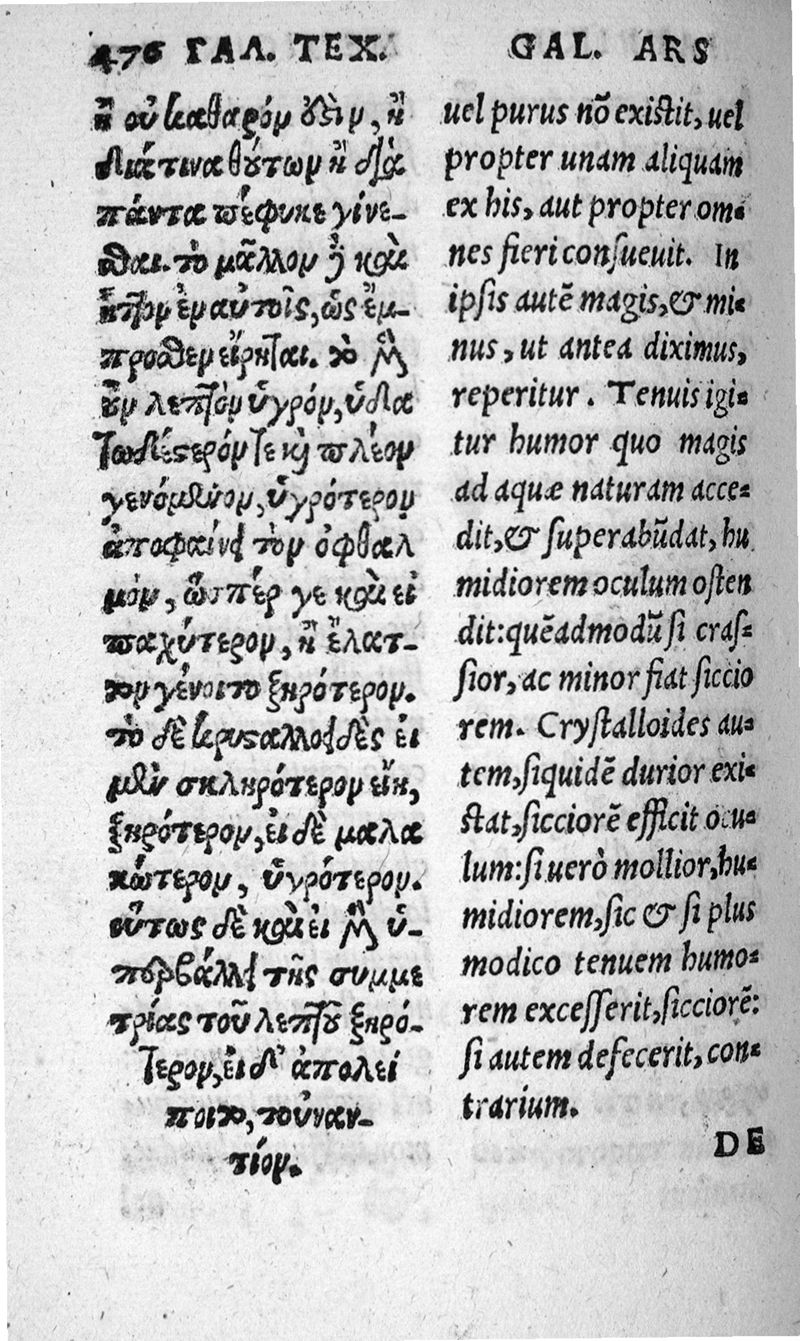 476 ΓΑΛ. ΤΕΧ.
ἢ οὐ καθαρὸν οὐδὲν, ἢ
διά τινα τούτων ἢ διὰ
πάντα πέφυκε γίνε-
σθαι. τὸ μᾶλλον δὲ καὶ
ἧττον ἐν αὐτοῖς, ὡς ἔμ-
προσθεν εἴρηται. τὸ μὲν
οὖν λεπτὸν ὑγρόν, ὑδα
τωδέστερόν τε καὶ πλέον
γενόμενον, ὑγρότερον
ἀποφαίνει τὸν ὀφθαλ
μόν, ὥσπέρ γε καὶ εἰ
παχύτερον, ἢ ἔλατ-
τον γένοιτο ξηρότερον.
τὸ δὲ κρυσταλλοειδὲς εἰ
μὲν σκληρότερον εἴη,
ξηρότερον, εἰ δὲ μαλα
κώτερον, ὑγρότερον.
οὕτως δὲ καὶ εἰ μὲν ὑ-
περβάλλει τῆς συμμε
τρίας τοῦ λεπτοῦ ξηρό-
τερον, εἰ δ' ἀπολεί
ποιτο, τοὐναν-
τίον.
GAL. ARS
uel purus nō existit, uel
propter unam aliquam
ex his, aut propter om-
nes fieri consueuit. In
ipsis autē magis, & mi-
nus, ut antea diximus,
reperitur. Tenuis igi-
tur humor quo magis
ad aquæ naturam acce-
dit, & superabūdat, hu
midiorem oculum osten
dit: quēadmodū si cras-
sior, ac minor fiat siccio
rem. Crystalloides au-
tem, siquidē durior exi-
stat, sicciorē efficit ocu-
lum: si uerò mollior, hu-
midiorem, sic & si plus
modico tenuem humo-
rem excesserit, sicciorē:
si autem defecerit, con-
trarium.
DE